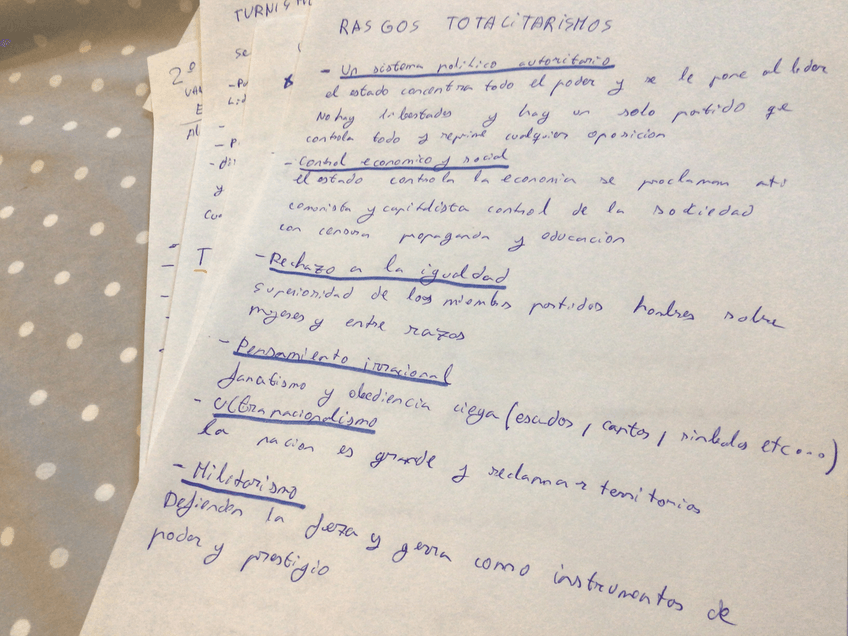 TURNISM
2º
RASGOS TOTALITARISMOS
- Un sistema politico autoritario
el estado concentra todo el poder y se le pone al lider
No hay libertades y hay un solo partido qe
controla todo y reprime cualquier oposicion
- Control economico y social
el estado controla la economia se proclaman anti
comunista y capitalista control de la sociedad
con censura propaganda y educacion
- Rechazo a la igualdad
superioridad de los miembros partidos hombres sobre
mujeres y entre razas
- Pensamiento irracional
fanatismo y obediencia ciega (escudos, cantos, simbolos etc...)
- Ultranacionalismo
la nacion es grande y reclamar territorios
- Militarismo
Defienden la fuerza y gerra como instrumentos de
poder y prestigio